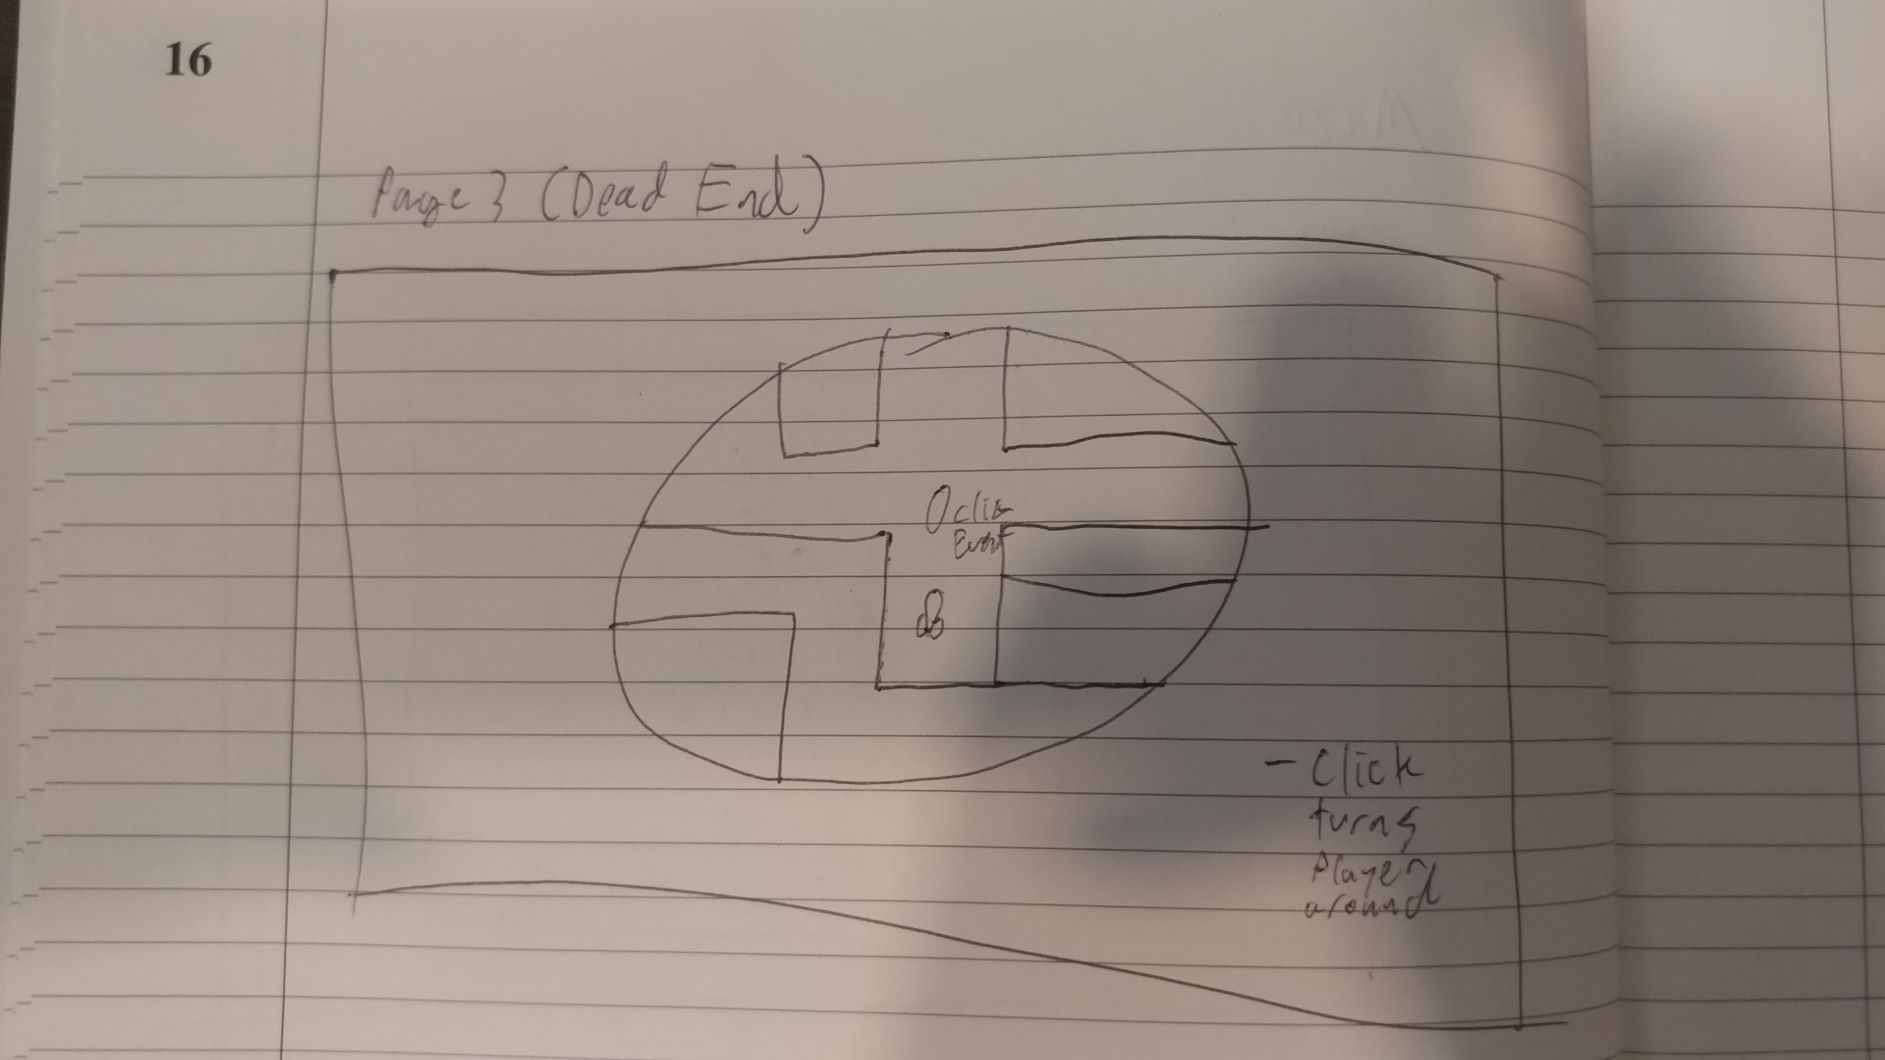 16
Page 3 (Dead End)
Click
Event
- Click
turns
Player
around